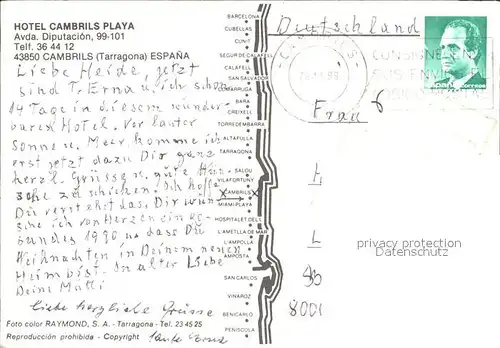 HOTEL CAMBRILS PLAYA
Avda. Diputación, 99-101
Telf. 36 44 12
43850 CAMBRILS (Tarragona) ESPAÑA
Liebe Heide, jetzt
sind T. Erna u. ich schon
14 Tage in diesem wunder-
baren Hotel. Vor lauter
Sonne u. Meer komme ich
erst jetzt dazu Dir ganz
herzl. Grüsse u. gute Wün-
sche zu schicken. Ich hoffe
Du verstehst das. Dir wün-
sche ich von Herzen ein ge-
sundes 1990 u. dass Du
Weihnachten in Deinem neuen
Heim bist. In alter Liebe
Deine Mutti
Liebe herzliche Grüsse
Tante Erna
Foto color RAYMOND, S. A. - Tarragona - Tel. 23 45 25
Reproducción prohibida - Copyright
BARCELONA
CUBELLAS
CUNIT
SEGUR DE CALAFELL
CALAFELL
SAN SALVADOR
COMARRUGA
BARA
CREIXELL
TORREDEMBARRA
ALTAFULLA
TARRAGONA
SALOU
VILAFORTUNY
X CAMBRILS X
MIAMI PLAYA
HOSPITALET DEL I.
L'AMETLLA DE MAR
L'AMPOLLA
AMPOSTA
SAN CARLOS
VINAROZ
BENICARLO
PEÑISCOLA
Deutschland
CAMBRILS
CONSIGNE EN
SUS ENVIOS
Correos
Frau
privacy protection
Datenschutz
8000